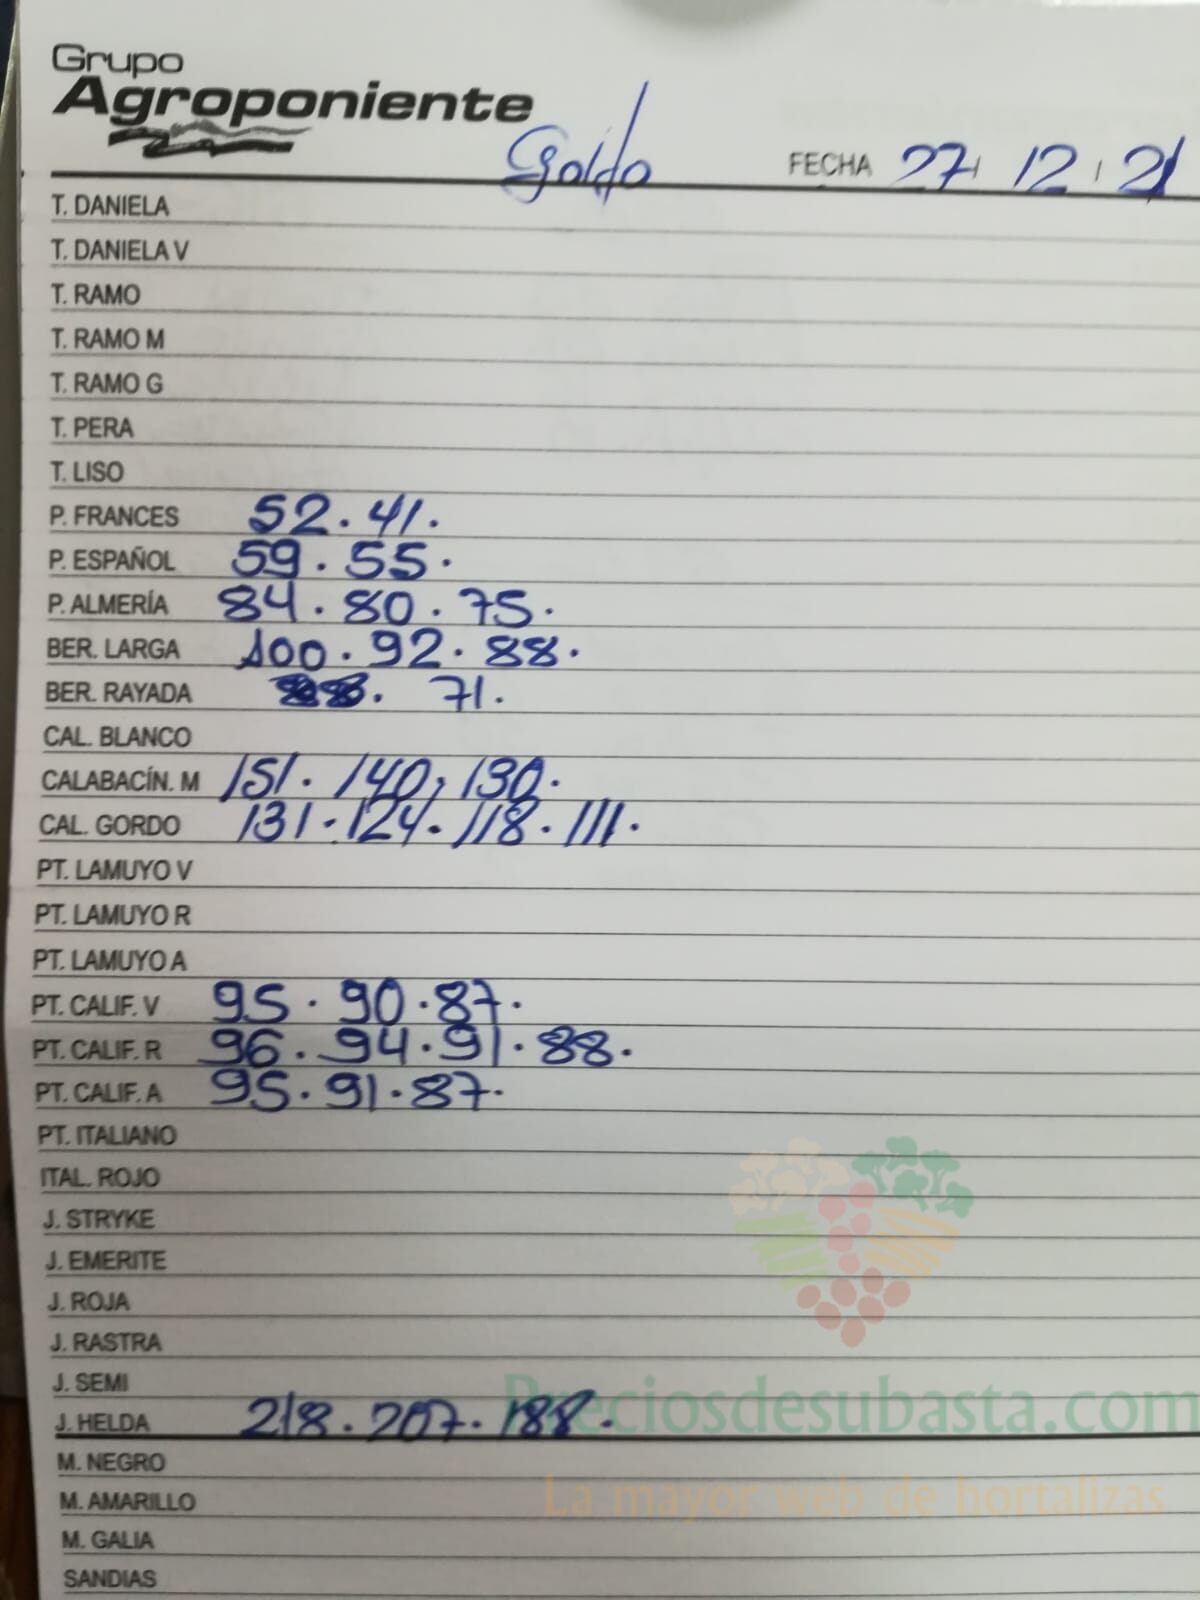 Grupo
Agroponiente
Goldo FECHA 27 / 12 / 21
T. DANIELA
T. DANIELA V
T. RAMO
T. RAMO M
T. RAMO G
T. PERA
T. LISO
P. FRANCES 52. 41.
P. ESPAÑOL 59. 55.
P. ALMERÍA 84. 80. 75.
BER. LARGA 100. 92. 88.
BER. RAYADA 71.
CAL. BLANCO
CALABACÍN. M 151. 140, 130.
CAL. GORDO 131. 124. 118. 111.
PT. LAMUYO V
PT. LAMUYO R
PT. LAMUYO A
PT. CALIF. V 95. 90. 87.
PT. CALIF. R 96. 94. 91. 88.
PT. CALIF. A 95. 91. 87.
PT. ITALIANO
ITAL. ROJO
J. STRYKE
J. EMERITE
J. ROJA
J. RASTRA
J. SEMI
J. HELDA 218. 207. 188.
Preciosdesubasta.com
M. NEGRO
La mayor web de hortalizas
M. AMARILLO
M. GALIA
SANDIAS